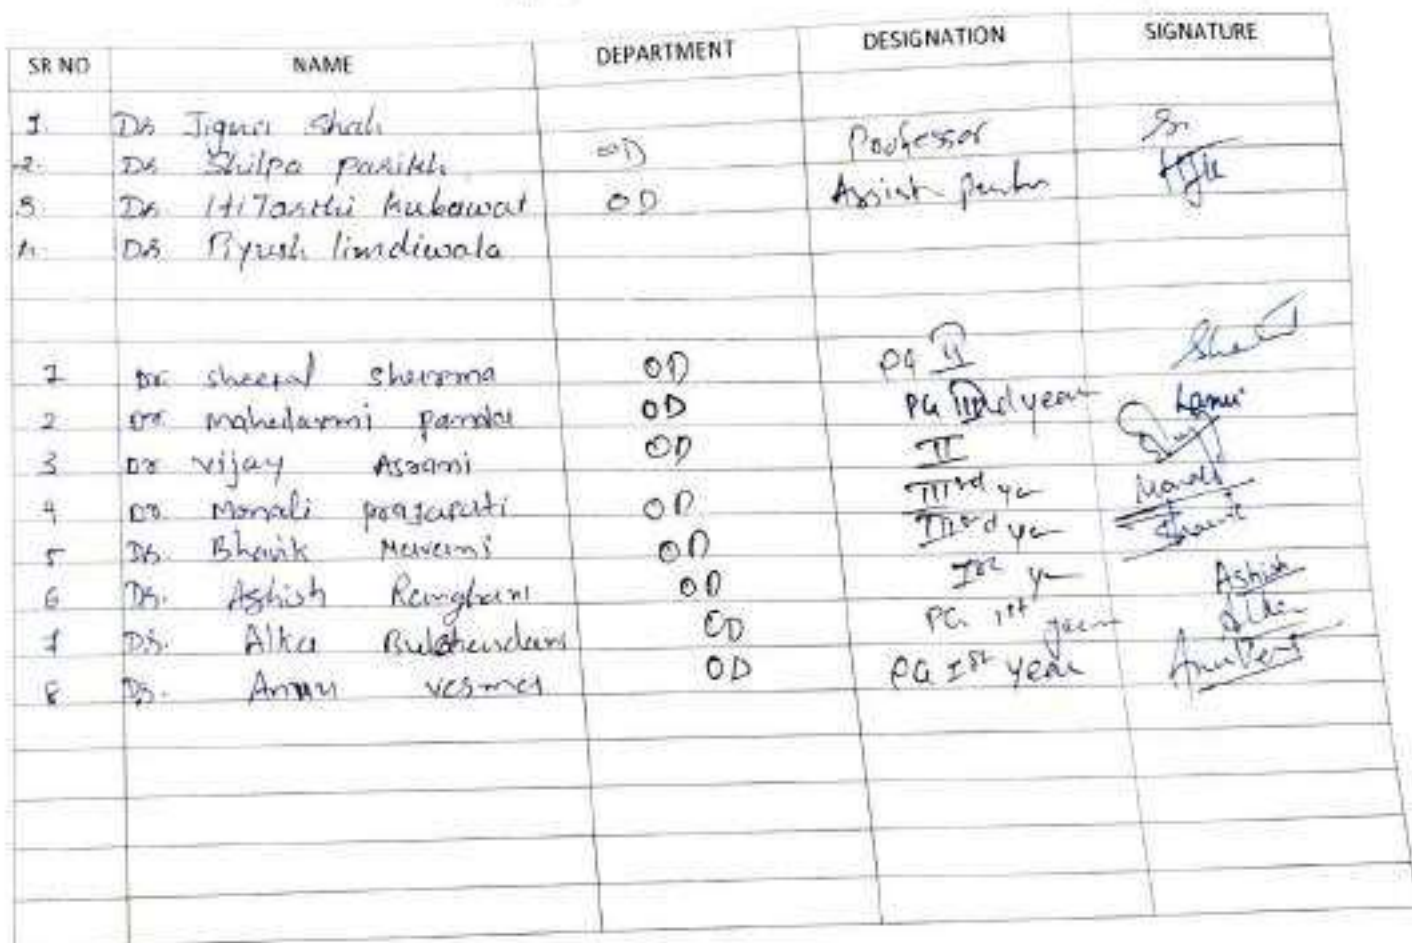 SR NO NAME DEPARTMENT DESIGNATION SIGNATURE
1. Dr Jigna Shah
2. Dr Shilpa Parikh OD Professor
3. Dr. Hitarthi Kubawat OD
4. Dr Piyush limdiwala
1 Dr. sheetal sharma OD PG II
2 Dr. Mahelaxmi OD PG IInd year Laxmi
3 Dr vijay Asrani OD II
4 Dr. Monali prajapati OD IIIrd yr Monali
5 Dr. Bhavik Mavani OD IIIrd yr Bhavik
6 Dr. Ashish Ramghani OD Ist yr Ashish
7 Dr. Alka OD PG 1st year Alka
8 Dr. Annu verma OD PG Ist year